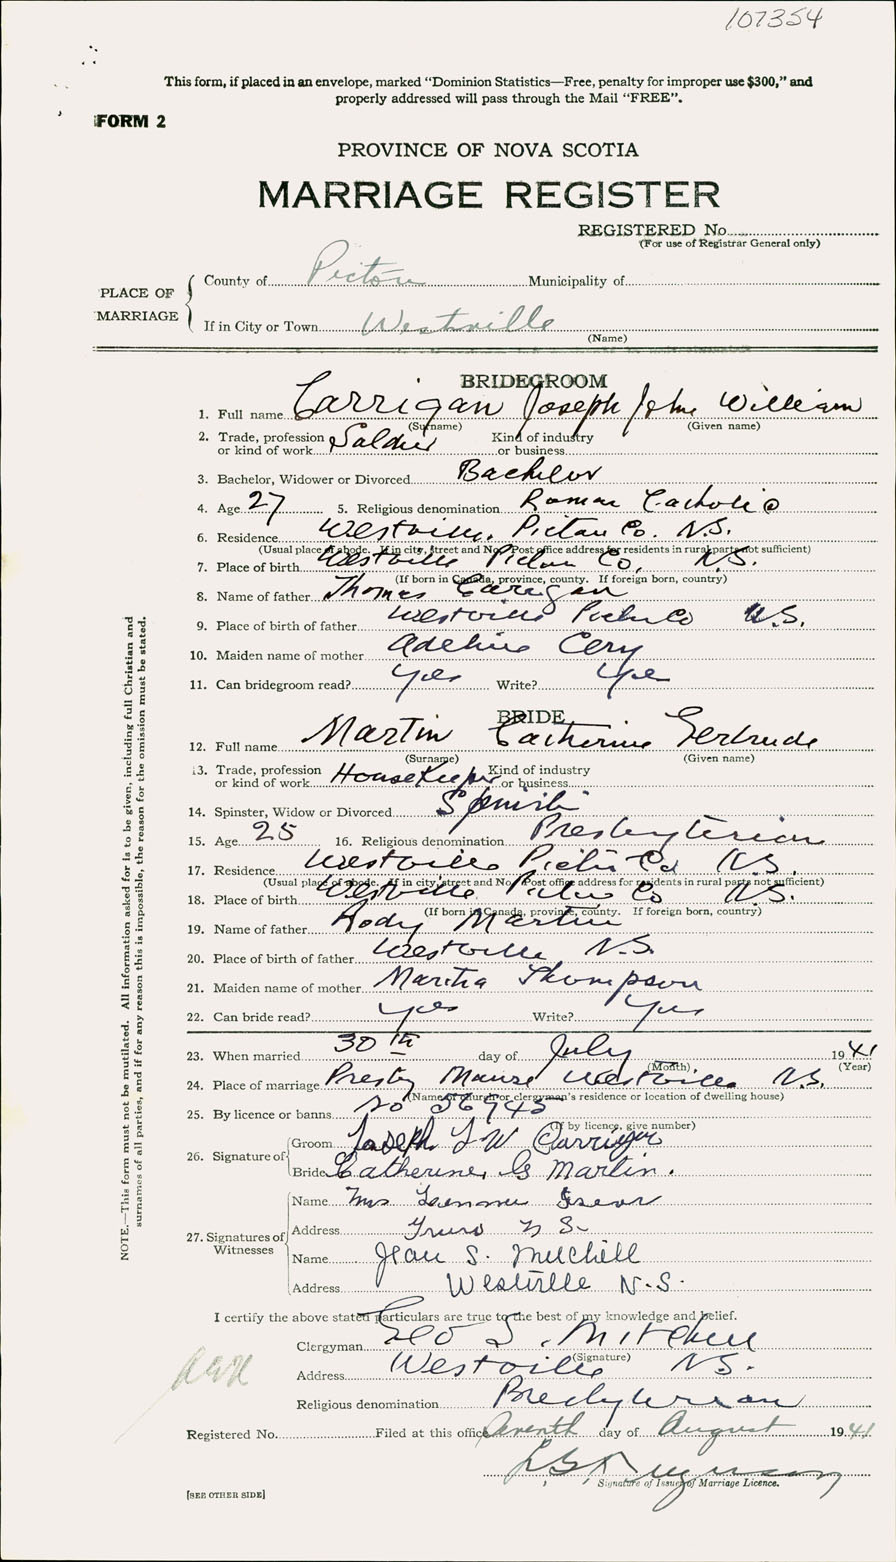 107354
This form, if placed in an envelope, marked “Dominion Statistics—Free, penalty for improper use $300,” and
properly addressed will pass through the Mail “FREE”.
FORM 2
PROVINCE OF NOVA SCOTIA
MARRIAGE REGISTER
REGISTERED No
(For use of Registrar General only)
PLACE OF MARRIAGE
County of Pictou Municipality of
If in City or Town Westville
(Name)
BRIDEGROOM
1. Full name Carrigan Joseph John William
(Surname) (Given name)
2. Trade, profession or kind of work Soldier Kind of industry or business
3. Bachelor, Widower or Divorced Bachelor
4. Age 27 5. Religious denomination Roman Catholic
6. Residence Westville, Pictou Co. N.S.
(Usual place of abode. If in city, street and No. Post office address for residents in rural parts not sufficient)
7. Place of birth Westville Pictou Co, N.S.
(If born in Canada, province, county. If foreign born, country)
8. Name of father Thomas Carrigan
9. Place of birth of father Westville Pictou Co N.S.
10. Maiden name of mother Adeline Cery
11. Can bridegroom read? Yes Write? Yes
BRIDE
12. Full name Martin Catherine Gertrude
(Surname) (Given name)
13. Trade, profession or kind of work Housekeeper Kind of industry or business
14. Spinster, Widow or Divorced Spinster
15. Age 25 16. Religious denomination Presbyterian
17. Residence Westville Pictou Co N.S.
(Usual place of abode. If in city, street and No. Post office address for residents in rural parts not sufficient)
18. Place of birth Westville Pictou Co N.S.
(If born in Canada, province, county. If foreign born, country)
19. Name of father Rody Martin
20. Place of birth of father Westville N.S.
21. Maiden name of mother Martha Thompson
22. Can bride read? Yes Write? Yes
23. When married 30th day of July 1941
(Month) (Year)
24. Place of marriage Presby Manse Westville N.S.
(Name of church or clergyman's residence or location of dwelling house)
25. By licence or banns No 56745
(If by licence, give number)
26. Signature of
Groom Joseph J W Carrigan
Bride Catherine G Martin.
27. Signatures of Witnesses
Name Mrs
Address Truro N S.
Name Jean S. Mitchell
Address Westville N.S.
I certify the above stated particulars are true to the best of my knowledge and belief.
Clergyman Geo S. Mitchell
(Signature)
Address Westville N.S.
Religious denomination Presbyterian
Registered No. Filed at this office seventh day of August 1941
Signature of Issuer of Marriage Licence.
[SEE OTHER SIDE]
NOTE.—This form must not be mutilated. All information asked for is to be given, including full Christian and
surnames of all parties, and if for any reason this is impossible, the reason for the omission must be stated.